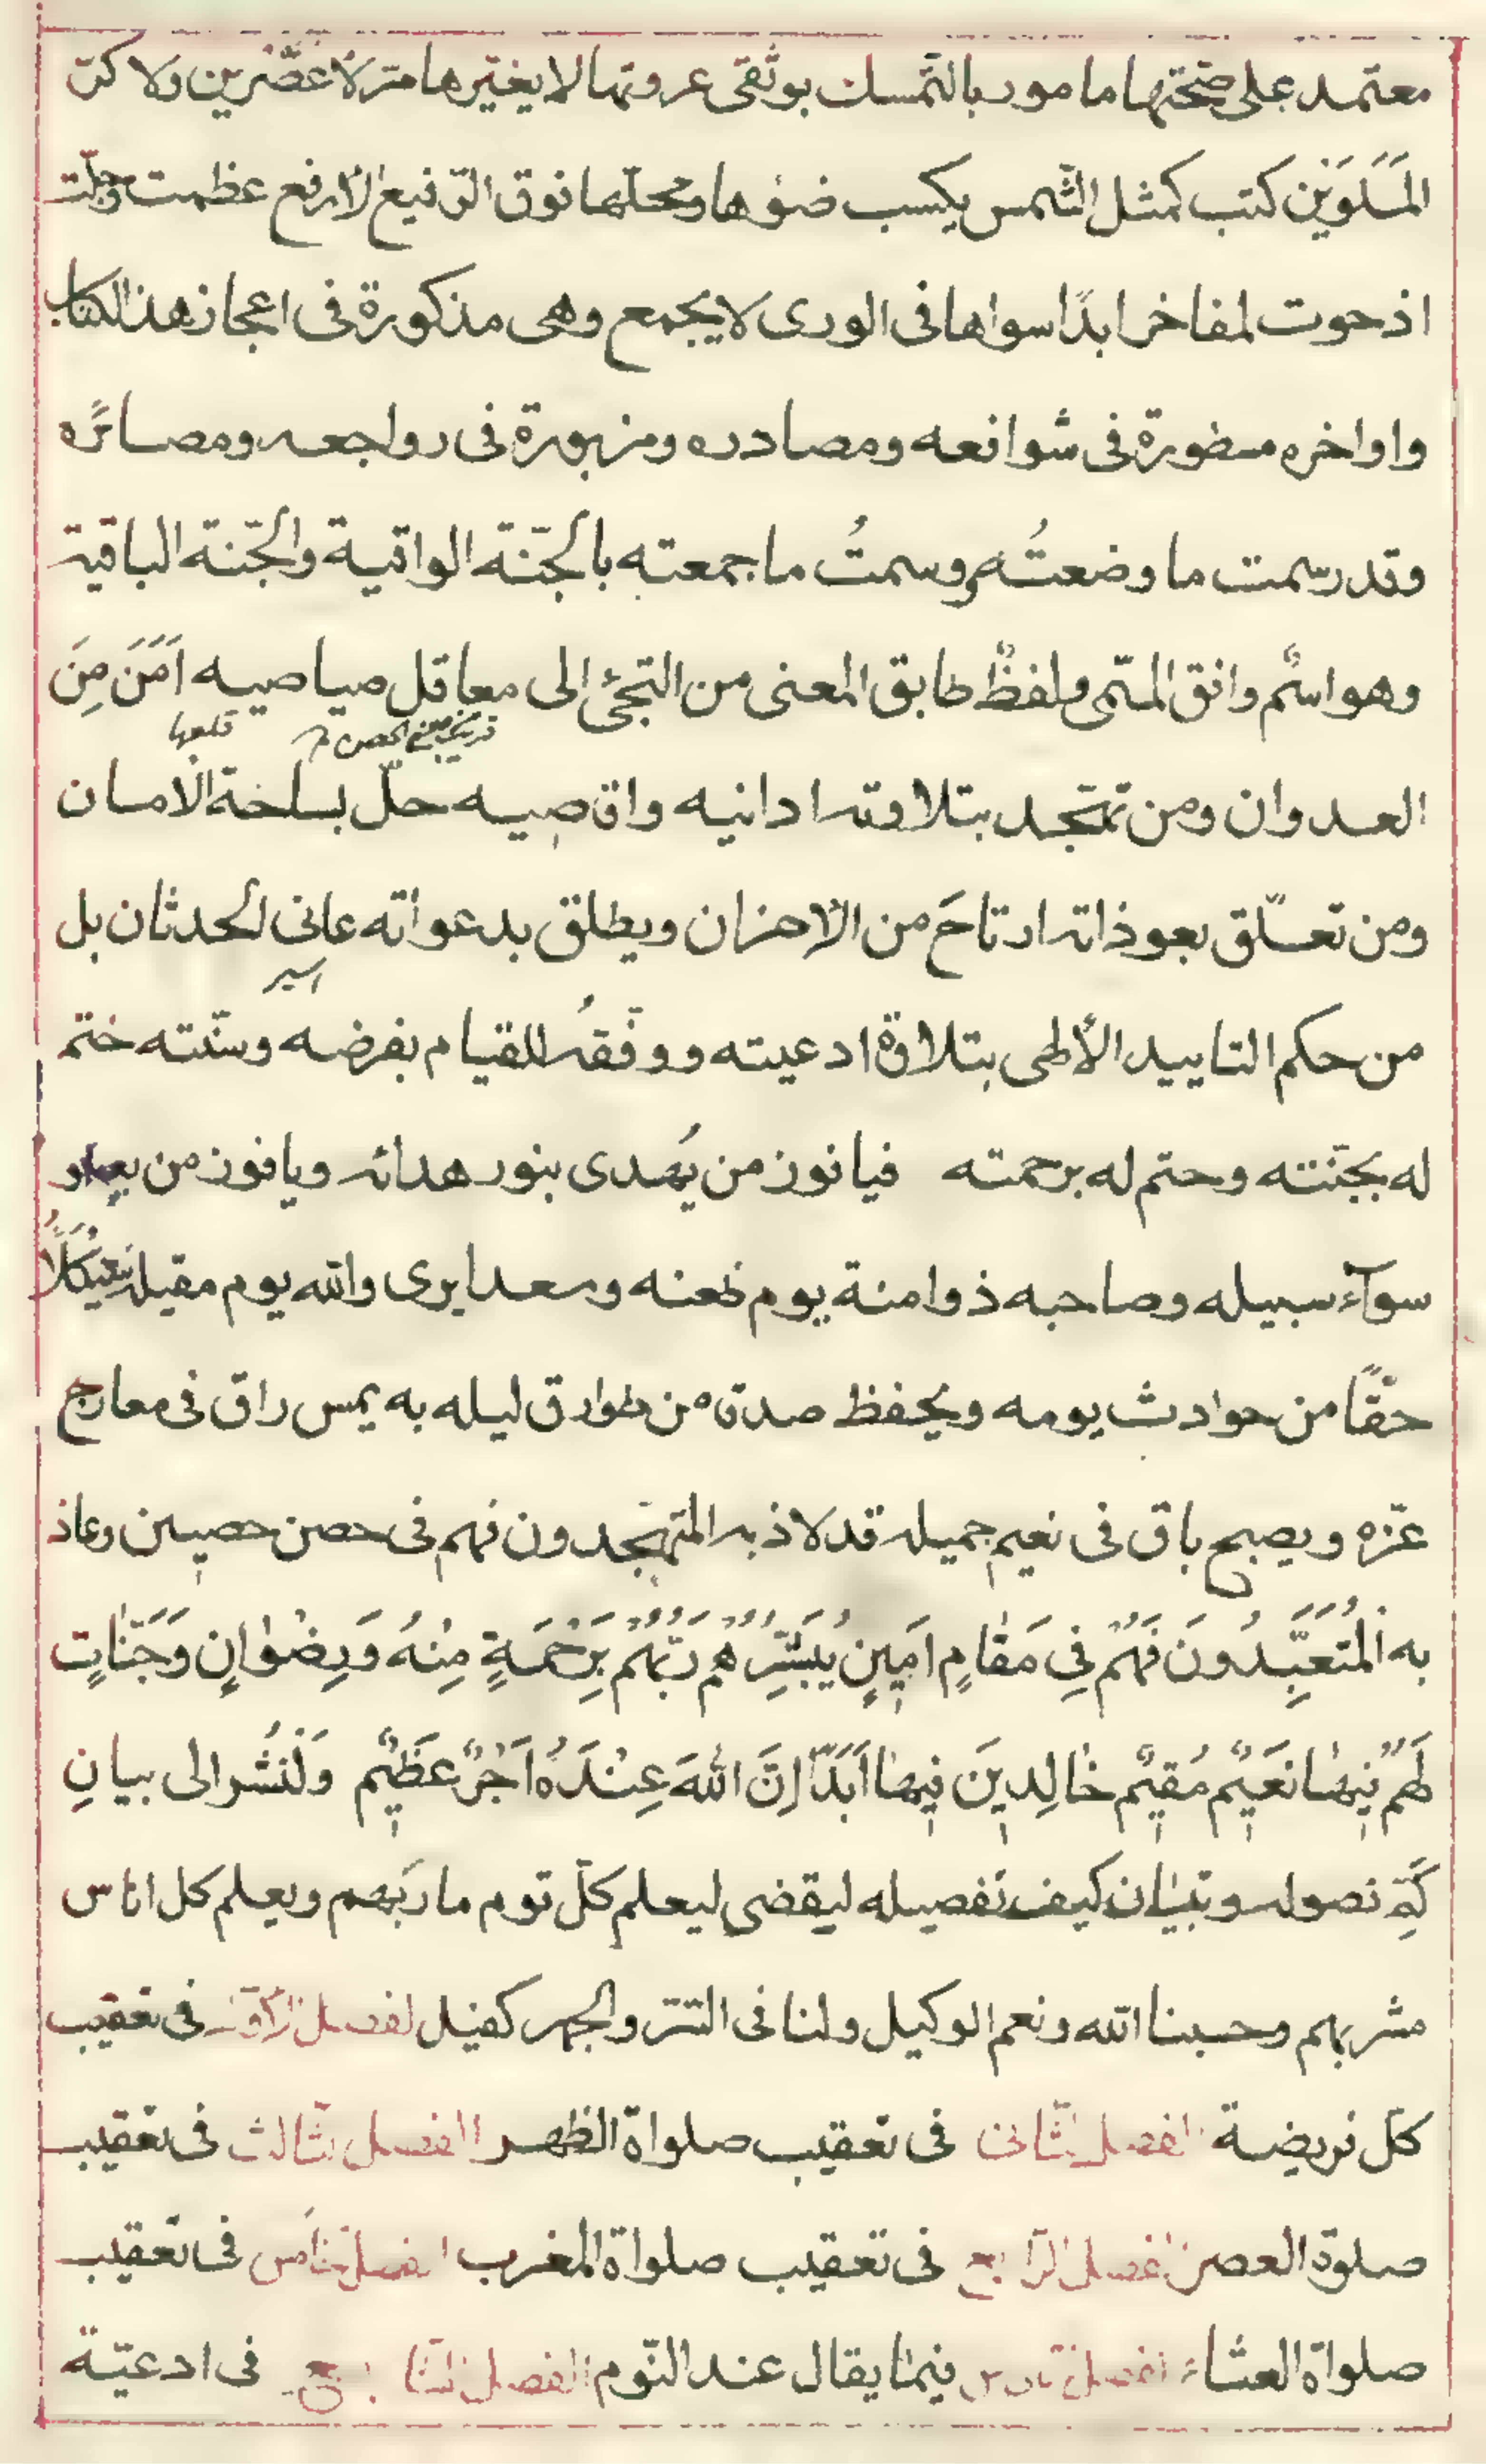 معتمد على صحّتها مامور بالتّمسك بوثقى عروتها لا يغيّرها مرّ الأعصرين ولا كرّ
المَلَوَيْن كتب كمثل الشّمس يكسب ضوءها ومحلّها فوق الرّفيع الأرفع عظمت وجلّت
اذ حوت لمفاخر ابدًا سواها فى الورى لا يجمع وهى مذكورة فى اعجاز هذا الكتاب
واواخره مسطورة فى شوانعه ومصادره ومزبورة فى رواجعه ومصائره
وقد رسمت ما وضعتُه ووسمتُ ما جمعته بالجُنّة الواقية والجَنّة الباقية
وهو اسمٌ وافق المسمّى ولفظٌ طابق المعنى من التجئ الى معاقل صياصيه اَمَنَ مِنَ
قلعها
العدوان ومن تمجّد بتلاوته ادانيه واقاصيه حلّ بساحة الامان
ومن تعلّق بعوذاته ارتاحَ من الأحزان ويطلق بدعواته عانى الحدثان بل
اسير
من حكم التاييد الألهى بتلاوة ادعيته ووفّقه للقيام بفرضه وسنّته ختم
له بجنّته وحتم له برحمته فيا فوز من يُهدى بنور هدائه ويا فوز من
سوآء سبيله وصاحبه ذو امنة يوم ظعنه وسعدا يرى والله يوم مقيله
حقًّا من حوادث يومه ويحفظ صدقا من طوارق ليله به يمس راق فى معارج
عزّه ويصبح باق فى نعيم جميله قد لاذ به المتهجدون فهم فى حصن حصين وعاذ
به الْمُتَعَبِّدُونَ فَهُمْ فِى مَقَامٍ اَمِينٍ يُبَشِّرُهُمْ رَبُّهُمْ بِرَحْمَةٍ مِنْهُ وَرِضْوَانٍ وَجَنَّاتٍ
لَهُمْ فِيهَا نَعِيمٌ مُقِيمٌ خَالِدِينَ فِيهَا اَبَدًا اِنَّ اللهَ عِنْدَهُ اَجْرٌ عَظِيمٌ وَلْنُشر الى بيانِ
كَمِّ فصوله وتبيان كيف تفصيله ليقضى ليعلم كلّ قوم ماربهم ويعلم كل اناس
مشربهم وحسبنا الله ونعم الوكيل ولنا فى السّرّ والجهر كفيل الفصل الأوّل فى تعقيب
كلّ فريضة الفصل الثّانى فى تعقيب صلواة الظهر الفصل الثّالث فى تعقيب
صلوة العصر الفصل الرّابع فى تعقيب صلواة المغرب الفصل الخامس فى تعقيب
صلواة العشاء الفصل السّادس فيما يقال عند النّوم الفصل السّابع فى ادعيّة